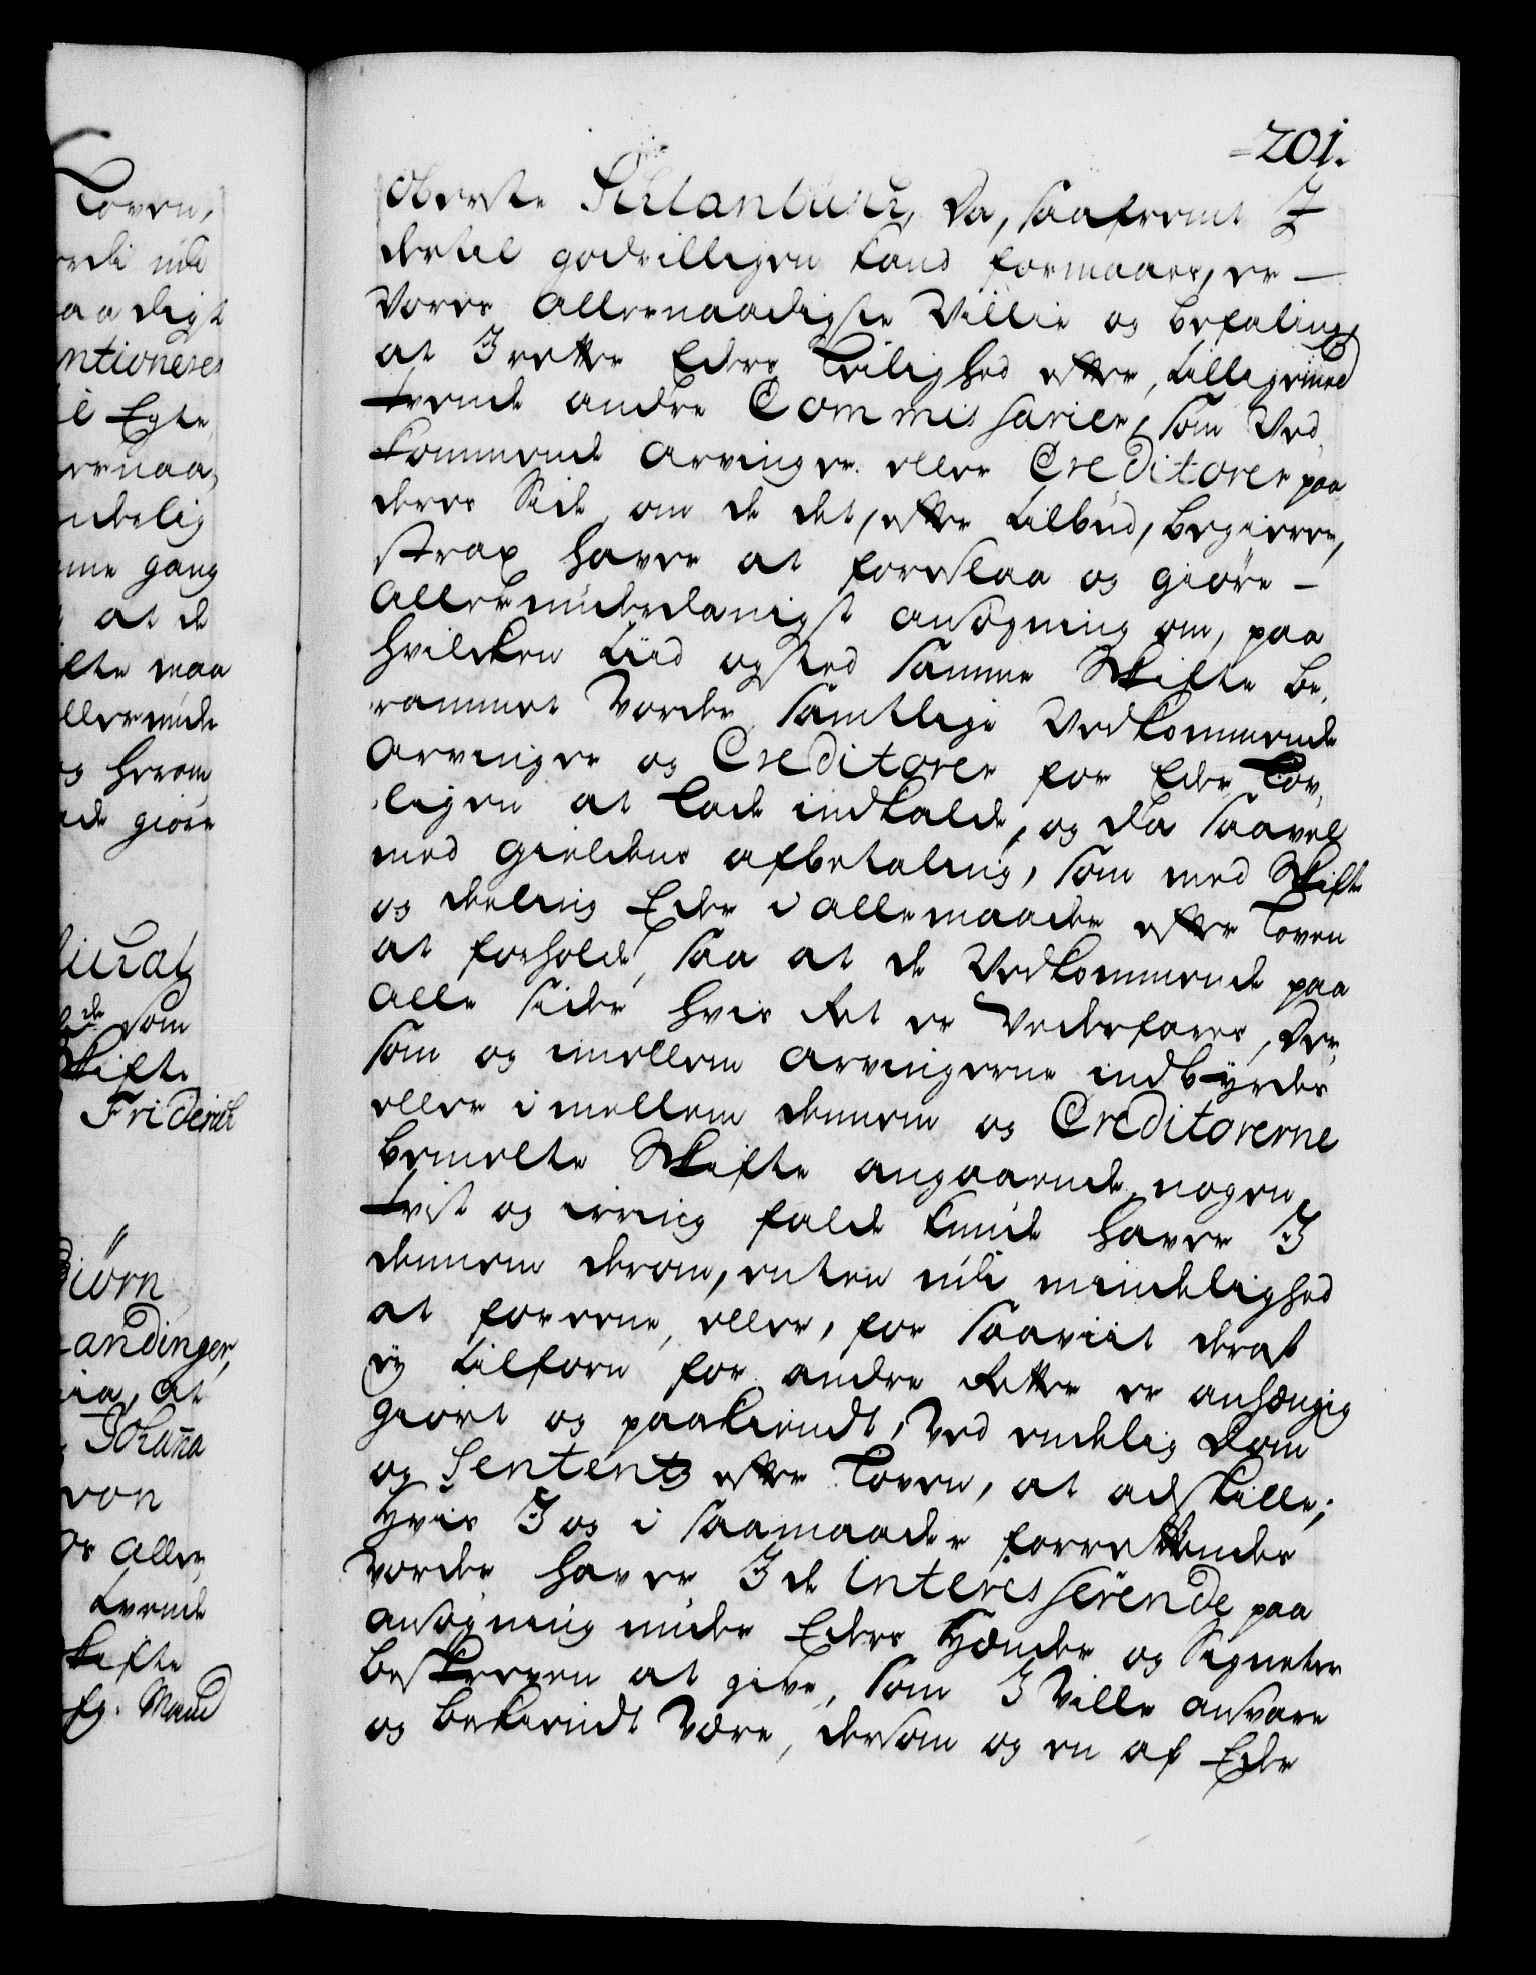 201.
Oberste Schlanbusch, da, saafremt I
dertil godvilligen kand formaaes, er –
Vores allernaadigste Villie og befaling,
at I rette Eders Leilighed efter, tilligemed
tvende andre Commissarier, som Ved-
kommende Arvinger eller Creditorer paa
deres Side, om de det, efter tilbud, begierer,
strax haver at foreslaa og giøre –
allerunderdanigst ansøgning om, paa
hvilcken tiid og sted samme Skifte be-
rammet vorder, samtlige Vedkommende
Arvinger og Creditorer for Eder Lov-
ligen at lade indkalde, og da saavel
med gieldens afbetaling, som med Skifte
og deeling Eder i alle maader efter Loven
at forholde, saa at de Vedkommende paa
alle sider hvis Ret er Vederfares, Der-
som og imellem Arvingerne indbyrdes
eller imellem dennem og Creditorerne
bemelte Skifte angaaende, nogen
tvist og irring falde kunde haver I
dennem derom, enten udi mindelighed
at foreene, eller, for saaviit deraf
ey tilforn for andre Retter er anhængig
giort og paakiendt, Ved endelig Dom
og Sententz efter Loven, at adskille;
Hvis I og i saamaader forrettendes
vorder haver I de interesserende paa
ansøgning under Eders Hænder og Signeter
beskreven at give, som I Ville ansvare
og bekiendt Være, dersom og en af Eder
Loven,
aadigt
Egte
gang
at de
maa
giøre
som
Skifte
Friderich
Johanna
von
tvende
Skifte
Mand